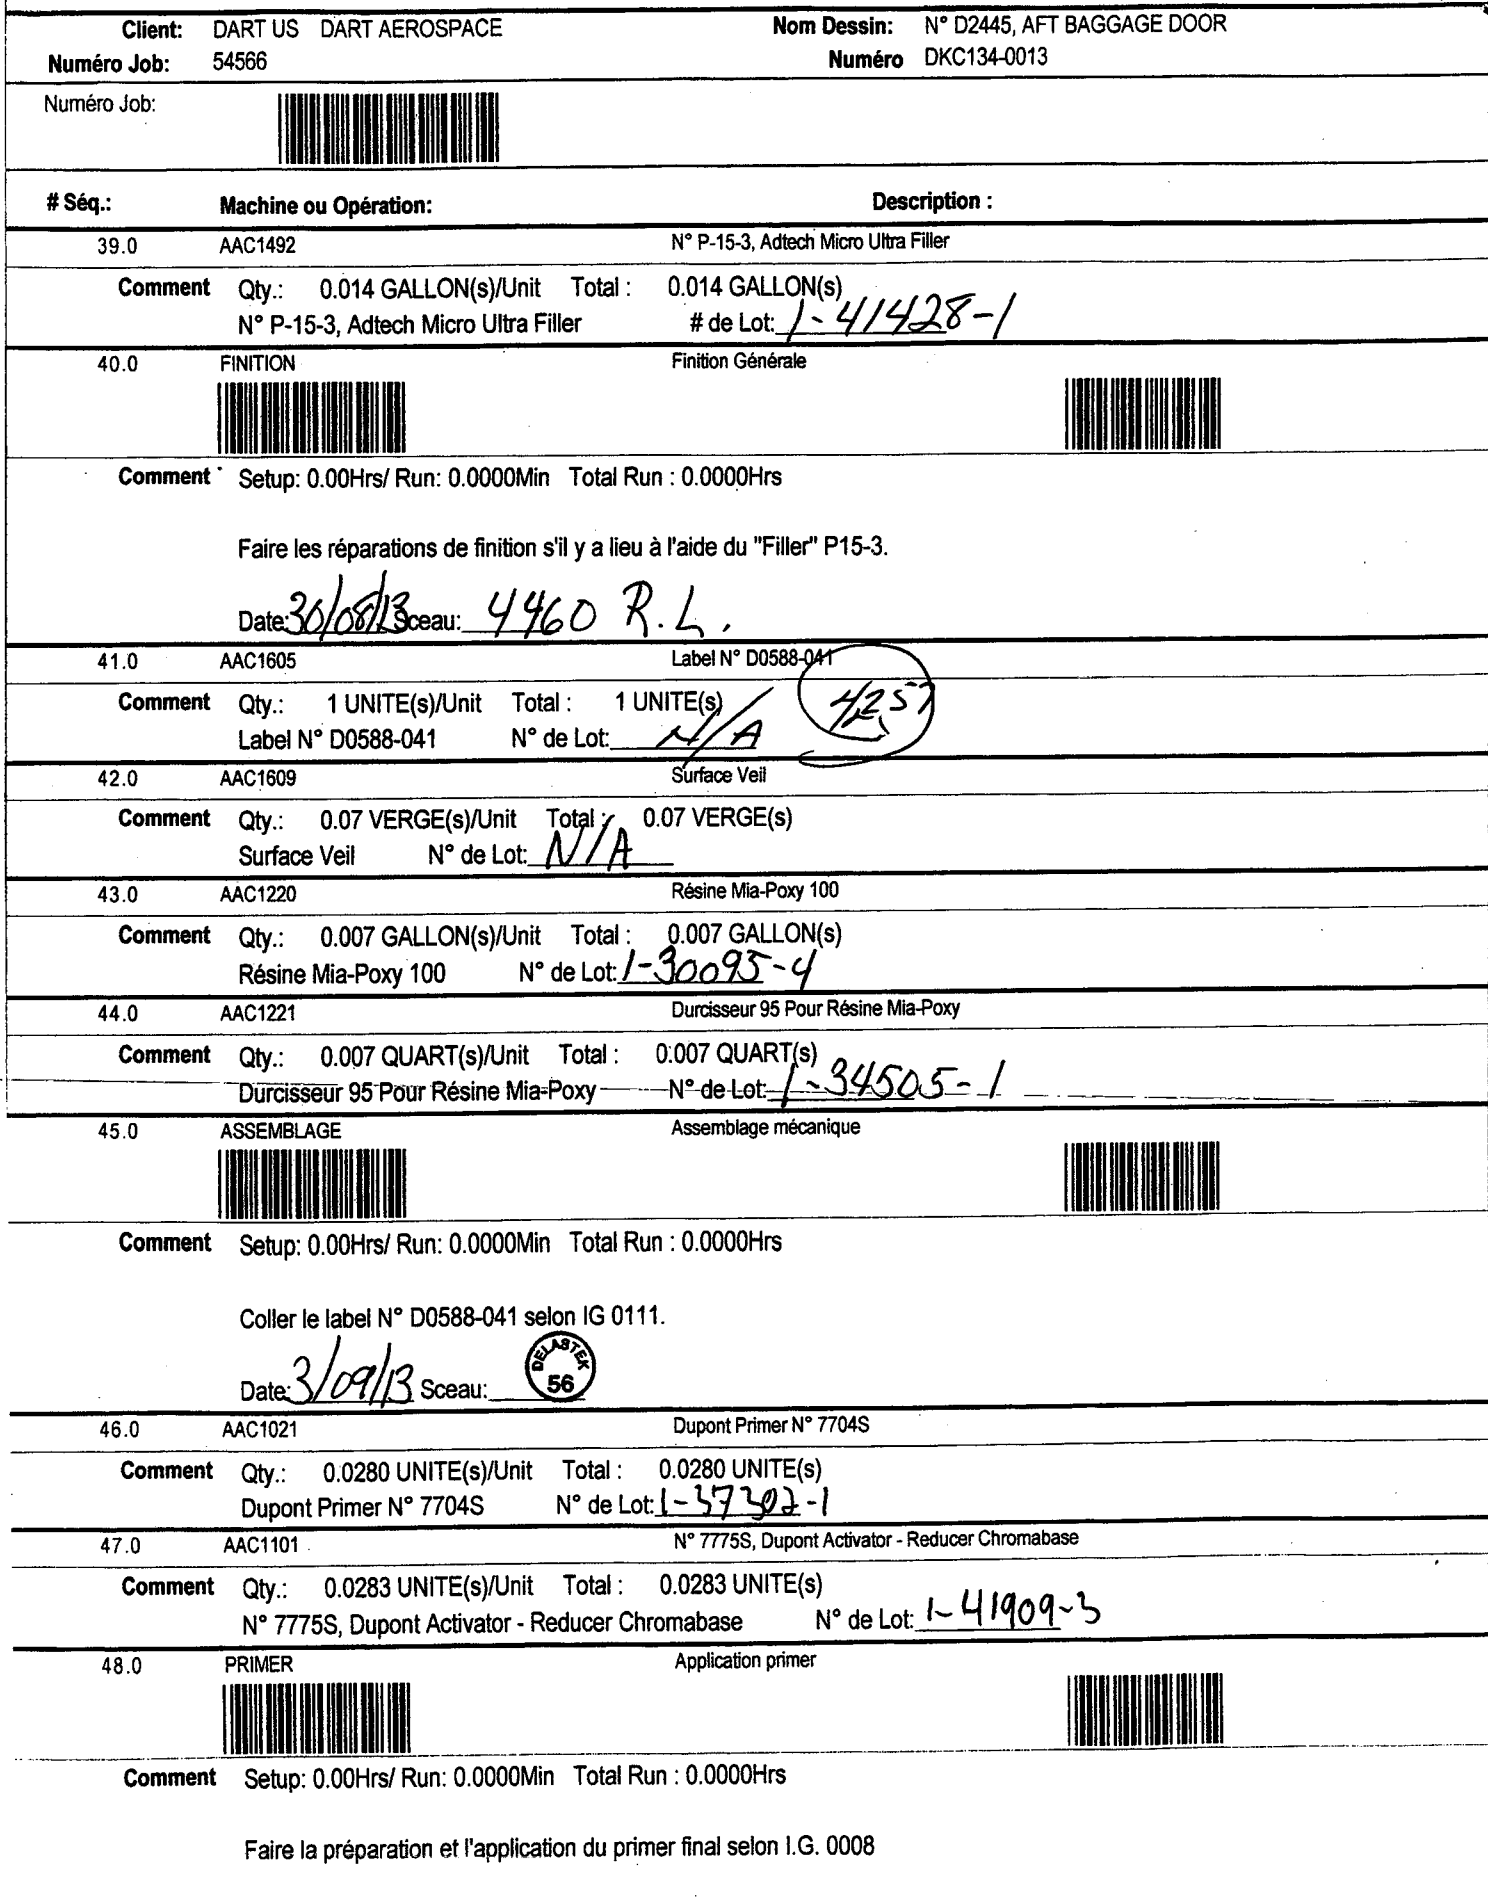 Client: DART US DART AEROSPACE Nom Dessin: N° D2445, AFT BAGGAGE DOOR
Numéro Job: 54566 Numéro DKC134-0013
Numéro Job:
# Séq.: Machine ou Opération: Description :
39.0 AAC1492 N° P-15-3, Adtech Micro Ultra Filler
Comment Qty.: 0.014 GALLON(s)/Unit Total : 0.014 GALLON(s)
N° P-15-3, Adtech Micro Ultra Filler # de Lot: 1-41428-1
40.0 FINITION Finition Générale
Comment Setup: 0.00Hrs/ Run: 0.0000Min Total Run : 0.0000Hrs
Faire les réparations de finition s'il y a lieu à l'aide du "Filler" P15-3.
Date: 30/08/13 Sceau: 4460 R.L.
41.0 AAC1605 Label N° D0588-041
Comment Qty.: 1 UNITE(s)/Unit Total : 1 UNITE(s) 4257
Label N° D0588-041 N° de Lot: N/A
42.0 AAC1609 Surface Veil
Comment Qty.: 0.07 VERGE(s)/Unit Total : 0.07 VERGE(s)
Surface Veil N° de Lot: N/A
43.0 AAC1220 Résine Mia-Poxy 100
Comment Qty.: 0.007 GALLON(s)/Unit Total : 0.007 GALLON(s)
Résine Mia-Poxy 100 N° de Lot: 1-30095-4
44.0 AAC1221 Durcisseur 95 Pour Résine Mia-Poxy
Comment Qty.: 0.007 QUART(s)/Unit Total : 0.007 QUART(s)
Durcisseur 95 Pour Résine Mia-Poxy N° de Lot: 1-34505-1
45.0 ASSEMBLAGE Assemblage mécanique
Comment Setup: 0.00Hrs/ Run: 0.0000Min Total Run : 0.0000Hrs
Coller le label N° D0588-041 selon IG 0111.
Date: 3/09/13 Sceau: DELASTEK 56
46.0 AAC1021 Dupont Primer N° 7704S
Comment Qty.: 0.0280 UNITE(s)/Unit Total : 0.0280 UNITE(s)
Dupont Primer N° 7704S N° de Lot: 1-37302-1
47.0 AAC1101 N° 7775S, Dupont Activator - Reducer Chromabase
Comment Qty.: 0.0283 UNITE(s)/Unit Total : 0.0283 UNITE(s)
N° 7775S, Dupont Activator - Reducer Chromabase N° de Lot: 1-41909-3
48.0 PRIMER Application primer
Comment Setup: 0.00Hrs/ Run: 0.0000Min Total Run : 0.0000Hrs
Faire la préparation et l'application du primer final selon I.G. 0008